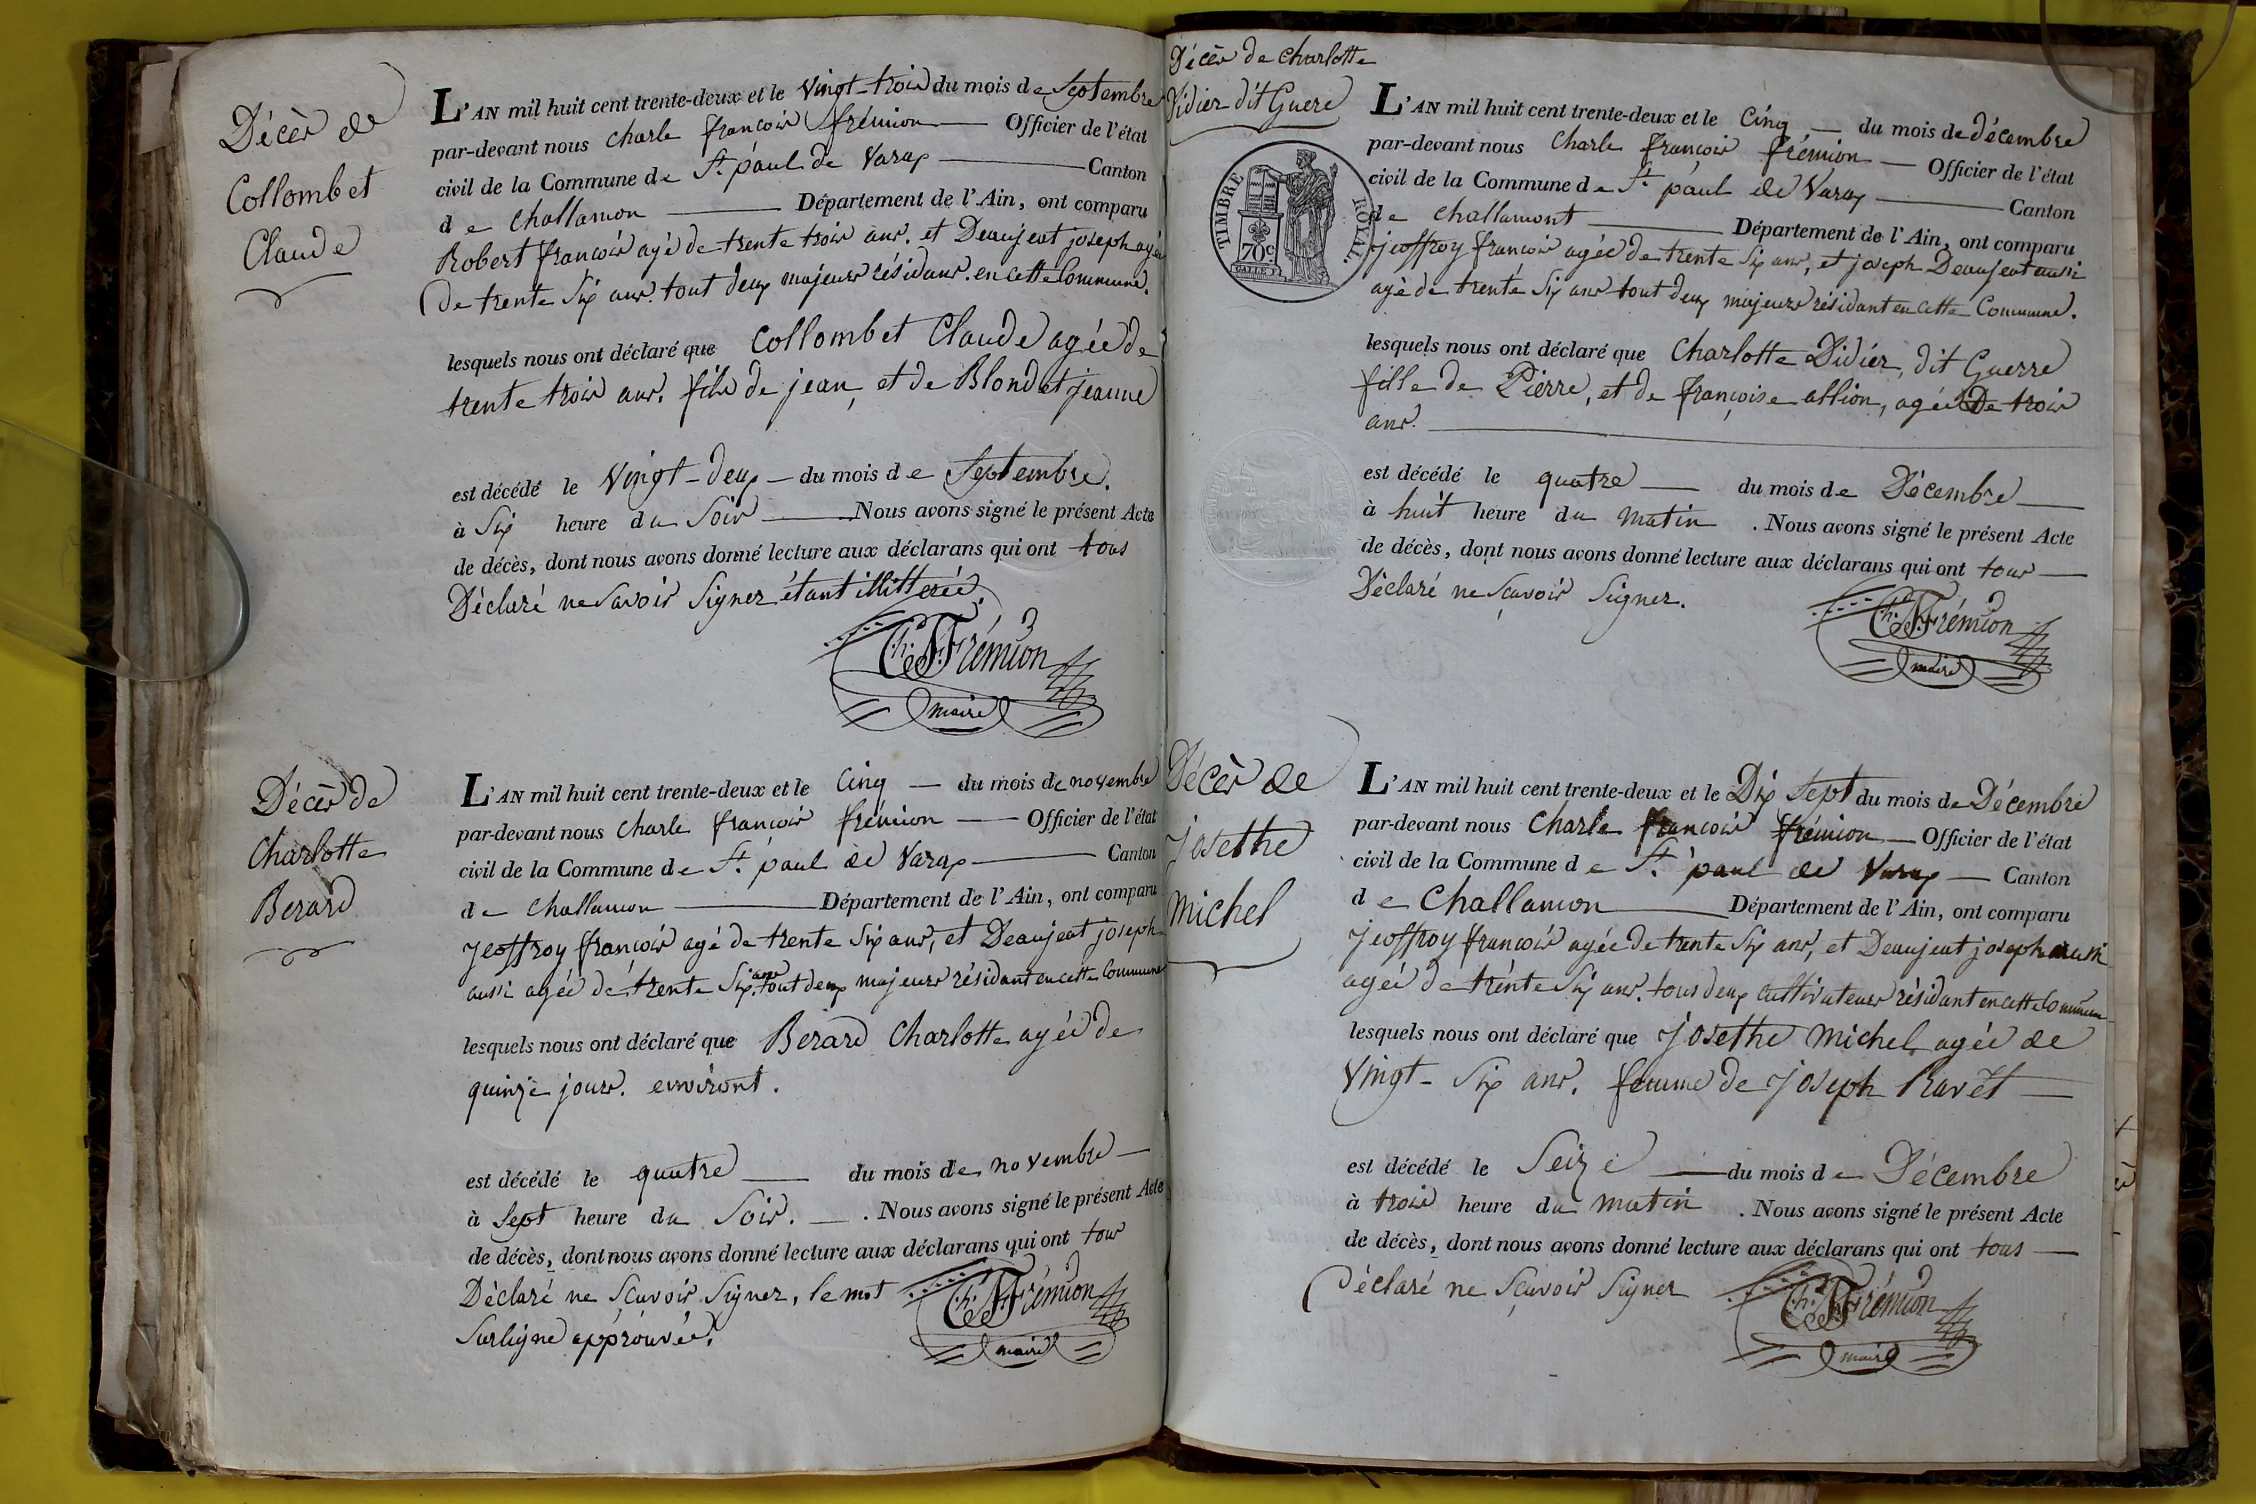 Décès de
Collombet
Claude
L'AN mil huit cent trente-deux et le vingt-trois du mois de Septembre
par-devant nous Charle françois frémion Officier de l'état
civil de la Commune de St. paul de Varax Canton
de Challamon Département de l'Ain, ont comparu
Robert françois agé de trente trois ans. et Deaujeat joseph agée
De trente Six ans. tout deux majeurs résidans. en cette Commune.
lesquels nous ont déclaré que Collombet Claude agée de
trente trois ans. fils de jean, et de Blondet jeanne
est décédé le Vingt-deux du mois de Septembre.
à Six heure du Soir Nous avons signé le présent Acte
de décès, dont nous avons donné lecture aux déclarans qui ont tous
Déclaré ne Savoir Signer étant illitterée.
Ch. F. Frémion
maire
Décès de
Charlotte
Berard
L'AN mil huit cent trente-deux et le Cinq du mois de novembre
par-devant nous Charle françois frémion Officier de l'état
civil de la Commune de St. paul de Varax Canton
de Challamon Département de l'Ain, ont comparu
jeoffroy françois agé de trente Six ans, et Deaujeat joseph
aussi agée de trente Six. ans tout deux majeurs résidant en cette Commune
lesquels nous ont déclaré que Berard Charlotte agée de
quinze jours. environt.
est décédé le quatre du mois de novembre
à Sept heure du Soir. . Nous avons signé le présent Acte
de décès, dont nous avons donné lecture aux déclarans qui ont tous
Déclaré ne Sçavoir Signer, le mot
Surligne approuvée.
Ch. F. Frémion
maire
Décès de Charlotte
Didier dit Guere
TIMBRE ROYAL.
70c
L'AN mil huit cent trente-deux et le Cinq du mois de décembre
par-devant nous Charle françois frémion Officier de l'état
civil de la Commune de St. paul de Varax Canton
de Challamont Département de l'Ain, ont comparu
jeoffroy françois agée de trente Six ans, et joseph Deaujeat aussi
agé de trente Six ans tout deux majeurs résidant en cette Commune.
lesquels nous ont déclaré que Charlotte Didier, dit Guerre
fille de Pierre, et de françoise allion, agée De trois
ans.
est décédé le quatre du mois de Décembre
à huit heure du matin . Nous avons signé le présent Acte
de décès, dont nous avons donné lecture aux déclarans qui ont tous
Déclaré ne Sçavoir Signer.
Ch. F. Frémion
maire
Décès de
Josethe
Michel
L'AN mil huit cent trente-deux et le Dix Sept du mois de Décembre
par-devant nous Charle françois frémion Officier de l'état
civil de la Commune de St. paul de Varax Canton
de Challamon Département de l'Ain, ont comparu
jeoffroy françois agée de trente Six ans, et Deaujeat joseph aussi
agée de trente Six ans. tous deux Cultivateurs résidant en cette Commune
lesquels nous ont déclaré que josethe Michel agée de
Vingt-Six ans. femme de joseph Ravet
est décédé le Seize du mois de Décembre
à trois heure du matin . Nous avons signé le présent Acte
de décès, dont nous avons donné lecture aux déclarans qui ont tous
Déclaré ne Sçavoir Signer
Ch. F. Frémion
maire